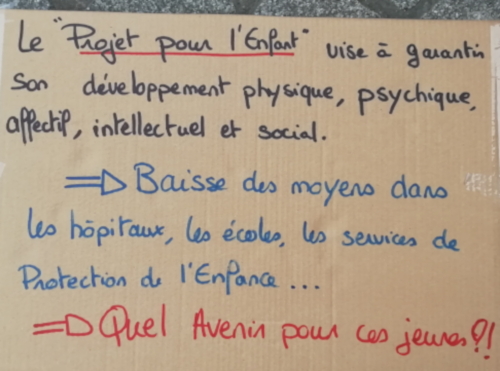 Le "Projet pour l'Enfant" vise à garantir
son développement physique, psychique,
affectif, intellectuel et social.
⇒ Baisse des moyens dans
les hôpitaux, les écoles, les services de
Protection de l'Enfance ...
⇒ Quel Avenir pour ces jeunes ?!